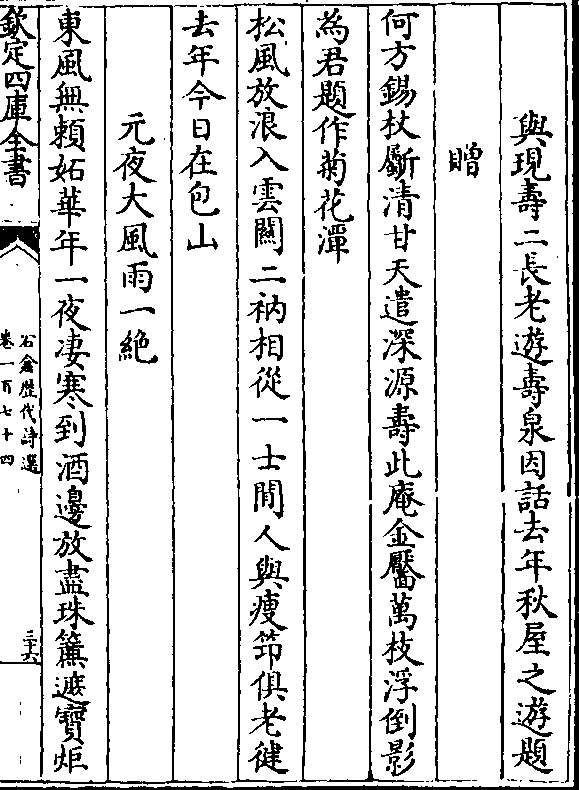 與現壽二長老遊壽泉因話去年秋屋之遊題
贈
何方錫杖斸清甘天遣深源壽此庵金靨萬枝浮倒影
為君題作菊花潭
松風放浪入雲關二衲相從一士閒人與瘦筇俱老健
去年今日在包山
元夜大風雨一絶
東風無賴妬華年一夜凄寒到酒邊放盡珠簾遮寶炬
欽定四庫全書
石倉歴代詩選
卷一百七十四
三十六